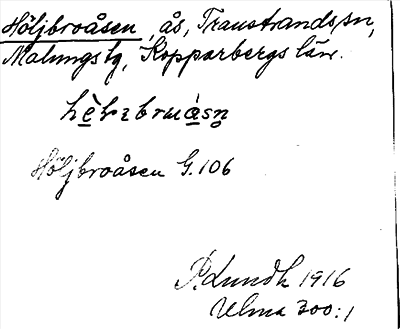 Höljbroåsen, ås, Transtrands sn,
Malungs tg, Kopparbergs län.
hèlɿbrɯásn̥
Höljbroåsen G.106
P. Lundh 1916
Ulma 300:1